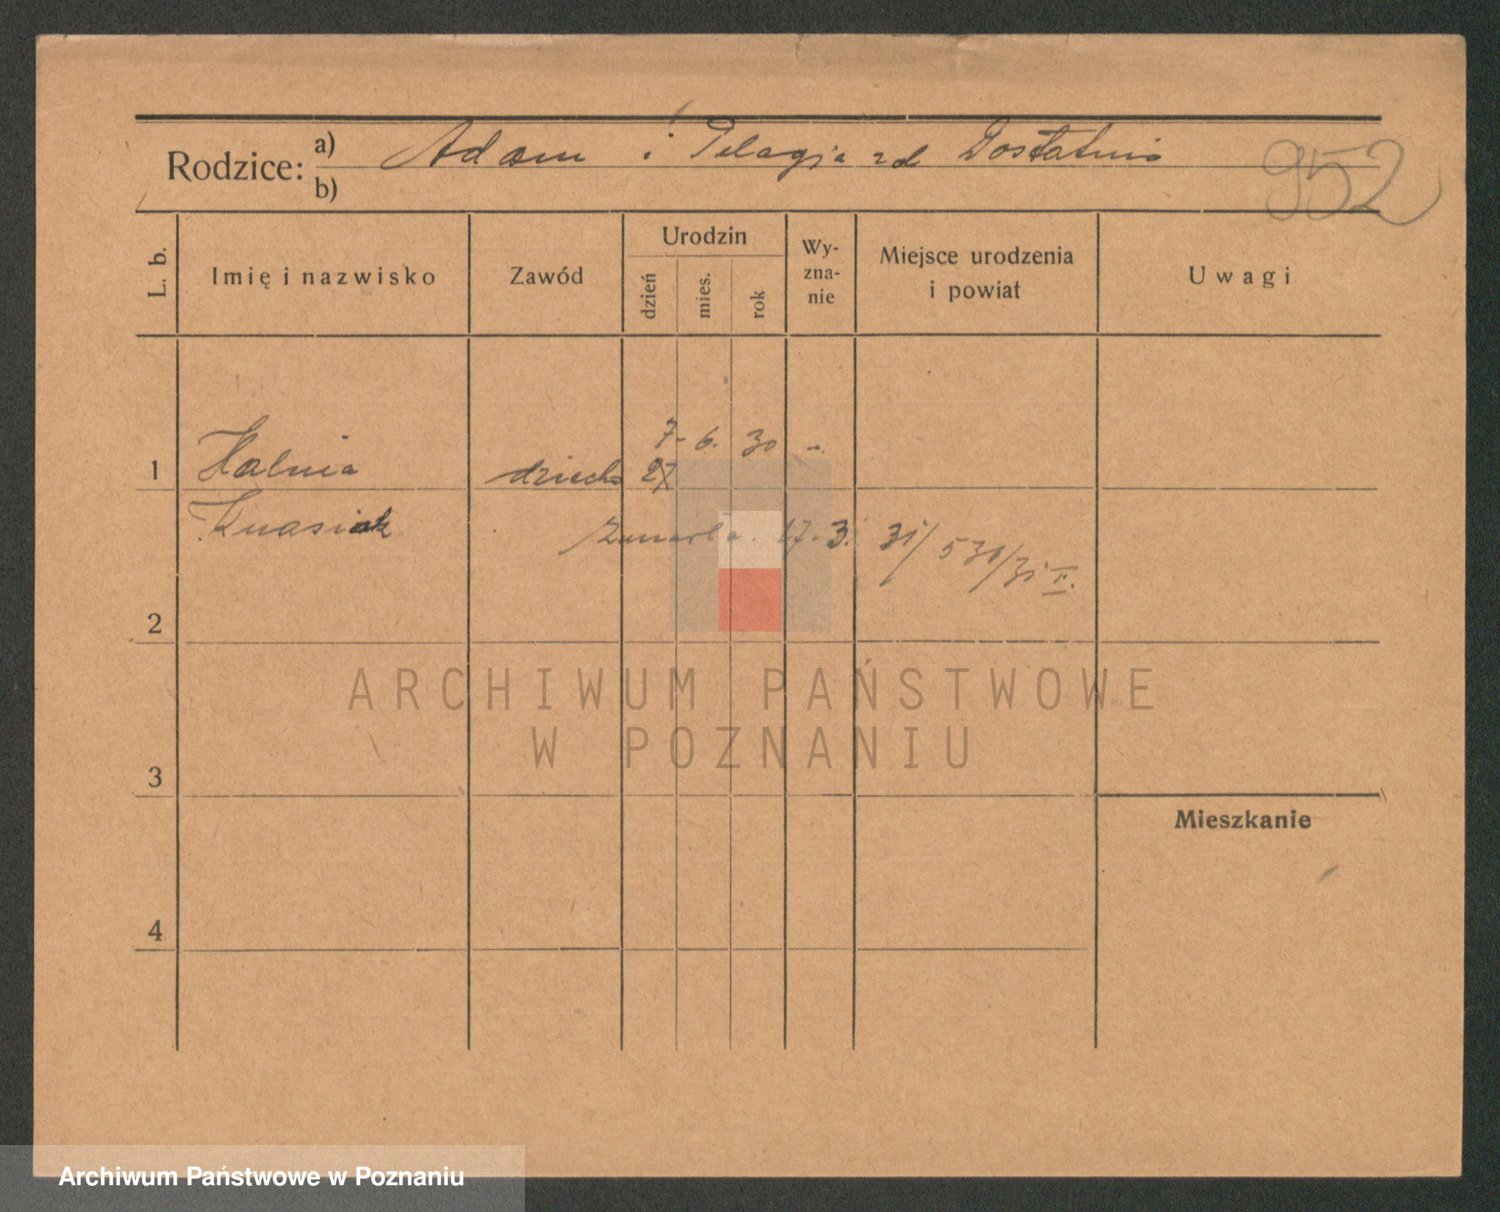 Rodzice: a) Adam i Pelagja zd Dostatnia
b)
952
L. b.
Imię i nazwisko
Zawód
Urodzin
dzień
mies.
rok
Wy-
zna-
nie
Miejsce urodzenia
i powiat
Uwagi
7. 6. 30
1 Halnia dziecko 27
Kuasiak
zmarła 17. 3. 31/ 530/31 II.
2
ARCHIWUM PAŃSTWOWE
W POZNANIU
3
Mieszkanie
4
Archiwum Państwowe w Poznaniu